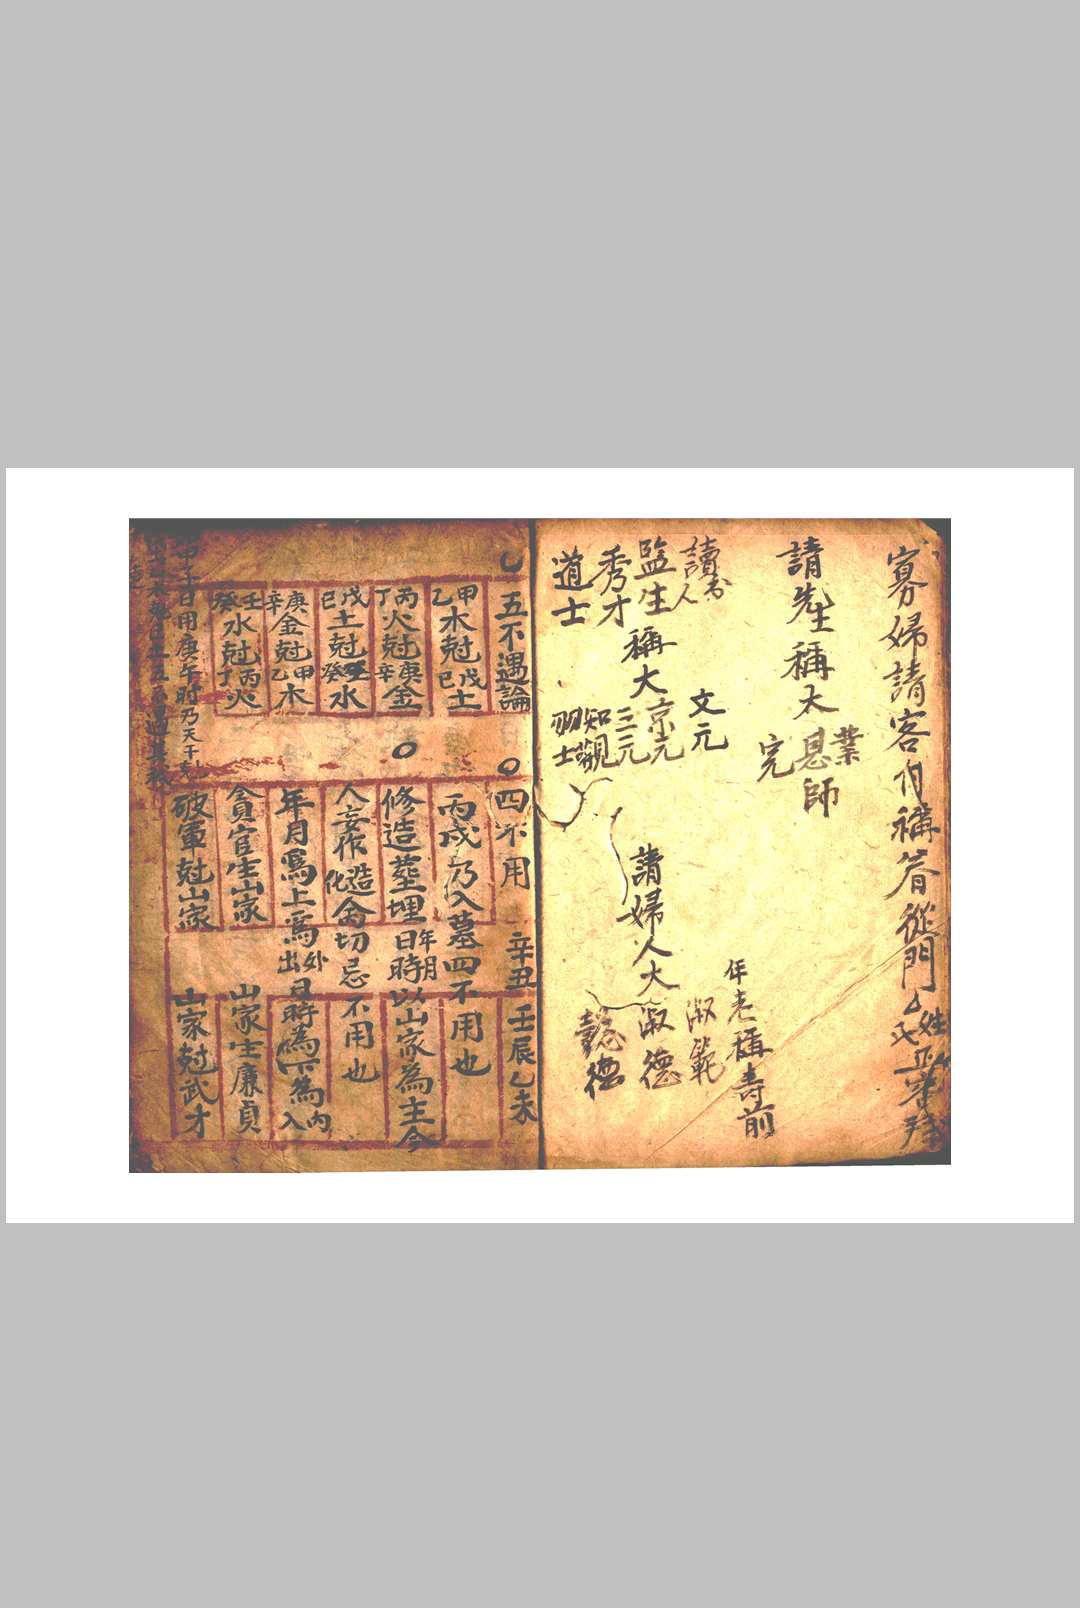 寡婦請客內稱答從門△姓氏
請先生稱太恩師
業
完
讀书人
文元
監生
京元
秀才
三元
稱大
道士
知觀
羽士
請婦人大淑德
淑範
懿德
年老稱壽前
五不遇論
甲乙木尅戊己土
丙丁火尅庚辛金
戊己土尅壬癸水
庚辛金尅甲乙木
壬癸水尅丙丁火
日用庚午时乃天干尅
四不用 辛丑 壬辰 乙未
丙戌乃入墓四不用也
修造塟埋年月日時以山家為主今
人妄作造化 切忌不用也
年月為上為外出日時為下為內入
貪官生山家 山家生廉貞
破軍尅山家 山家尅武才